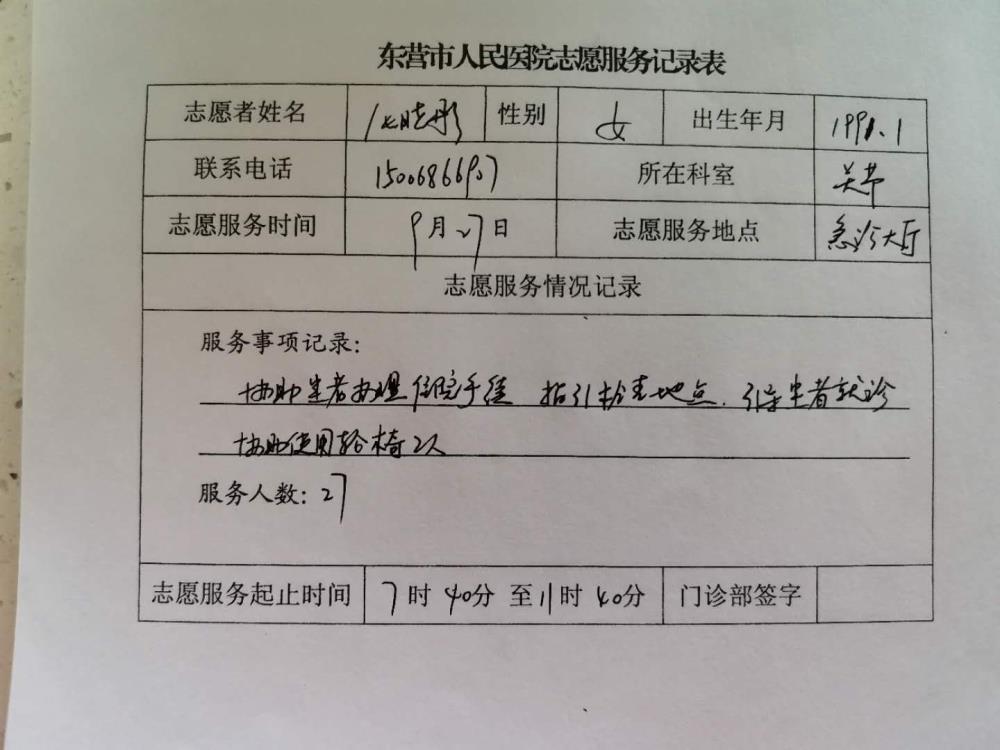 东营市人民医院志愿服务记录表
志愿者姓名 晓彤 性别 女 出生年月 1991.1
联系电话 15006866907 所在科室 关节
志愿服务时间 9月27日 志愿服务地点 急诊大厅
志愿服务情况记录
服务事项记录:
协助患者办理住院手续 指引检查地点. 引导患者就诊
协助使用轮椅2人
服务人数: 27
志愿服务起止时间 7时40分 至11时40分 门诊部签字